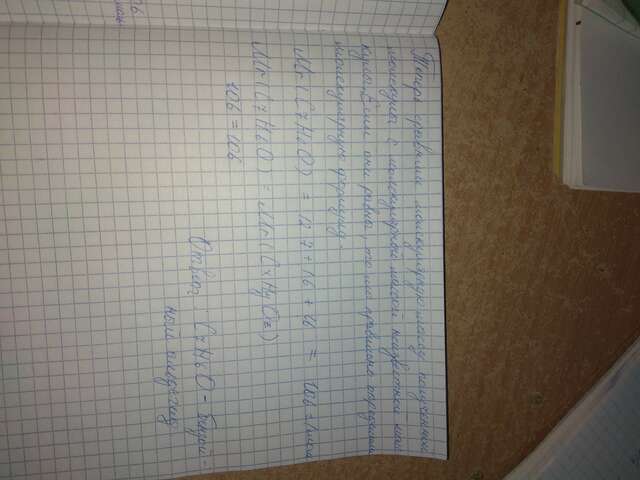 Теперь сравним молекулярную массу полученной
молекулы с молекулярной массой неизвестной моле
кулы. Если они равны, то мы правильно определили
молекулярную формулу.
Mr (C7H6O) = 12·7+1·6+16 = 106 г/моль
Mr (C7H6O) = Mr (CxHyOz)
106 = 106
Ответ: C7H6O - бензой-
ный альдегид